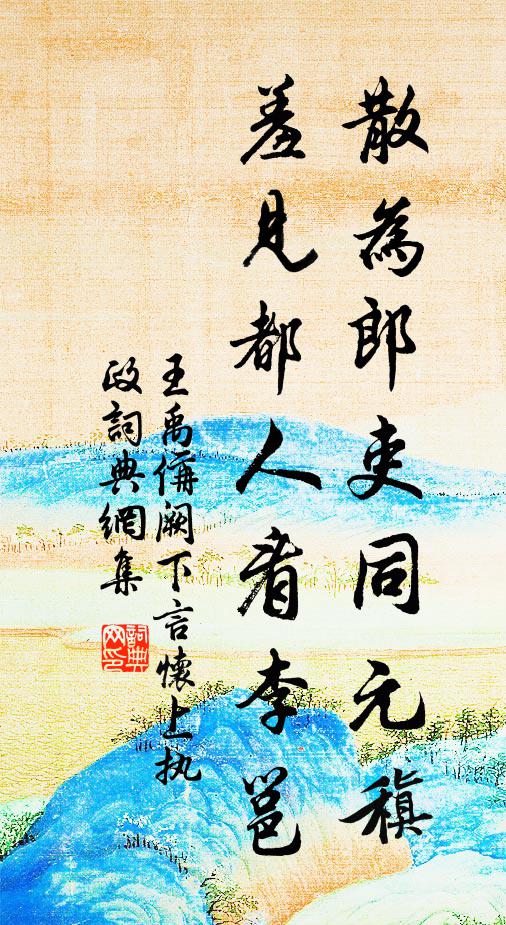 散為郎吏同元稹
羞見都人看李邕
王禹偁闕下言懷上执
政詞典網集
詞典
网印